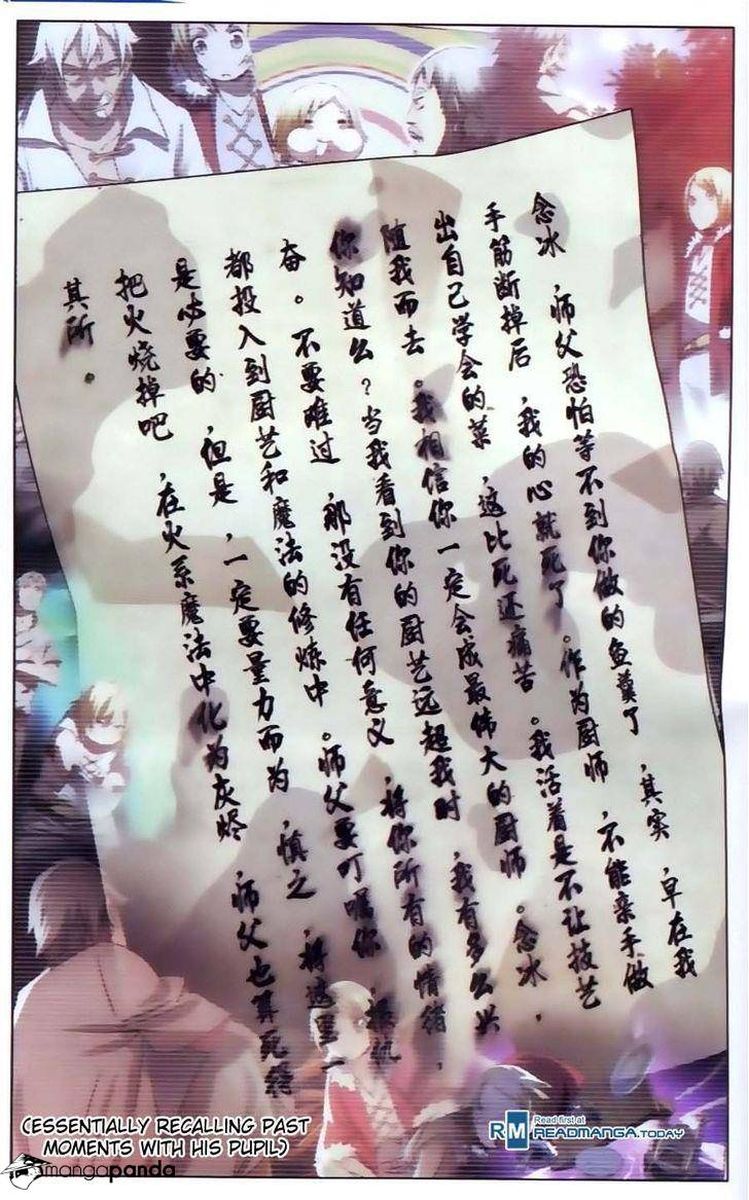 念冰，师父恐怕等不到你做的鱼羹了，其实，早在我
手筋断掉后，我的心就死了。作为厨师，不能亲手做
出自己学会的菜，这比死还痛苦。我活着是不让技艺
随我而去。我相信你一定会成最伟大的厨师。念冰，
你知道么？当我看到你的厨艺远超我时，我有多么兴
奋。不要难过，那没有任何意义，将你所有的情绪，
都投入到厨艺和魔法的修炼中。师父要叮嘱你，
是必要的，但是，一定要量力而为，慎之，将这里一
把火烧掉吧，在火系魔法中化为灰烬，师父也算死得
其所。
(ESSENTIALLY RECALLING PAST
MOMENTS WITH HIS PUPIL)
mangapanda
RM
Read first at
READMANGA.TODAY